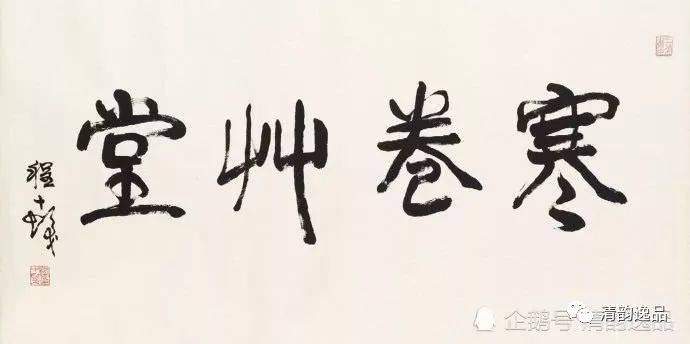 寒卷艸堂
程十髮
企鹅号 清韵逸品
清韵逸品